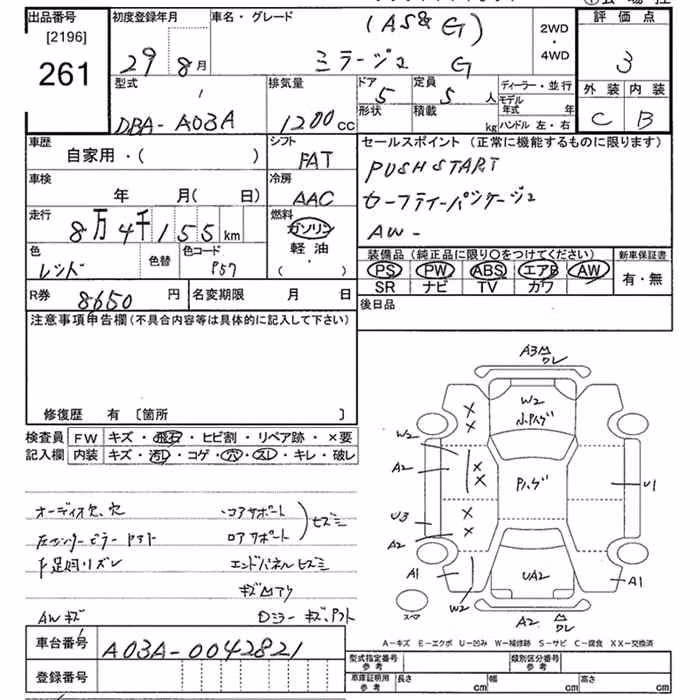 出品番号 初度登録年月 車名・グレード 評価点
[2196]
261
29 8月
(AS&G)
ミラージュ G
2WD
・
4WD
3
外装 内装
C B
型式 排気量 ドア 定員 ディーラー・並行
DBA-A03A 1200cc 5 5人
形状 積載 kg
モデル年式 年
ハンドル 左・右
車歴 シフト セールスポイント (正常に機能するものに限ります)
自家用・( ) FAT
PUSH START
車検 冷房
年 月(日) AAC
セーフティーパッケージ
AW-
走行 燃料
8万4千155km ガソリン
軽油
・
( )
色 色替 色コード
レッド P57
装備品 (純正品に限り○をつけてください) 新車保証書
PS PW ABS エアB AW
SR ナビ TV カワ
有・無
R券 8650円 名変期限 月 日
後日品
注意事項申告欄(不具合内容等は具体的に記入して下さい)
修復歴 有 [箇所 ]
検査員 FW キズ・飛石・ヒビ割・リペア跡・×要
記入欄 内装 キズ・汚レ・コゲ・穴・スレ・キレ・破レ
オーディオ欠、穴 コアサポート
ロアサポート
エンドパネル
AWキズ
車台番号 A03A-0042821
登録番号
A3
ワレ
W2
W2
A2
U3
A2
A1
W2
U1
A1
UA2
A2
ワレ
スペア
A-キズ E-エクボ U-凹み W-補修跡 S-サビ C-腐食 XX-交換済
型式指定番号 参考 類別区分番号 参考
車庫証明用 参考 長さ cm 幅 cm 高さ cm